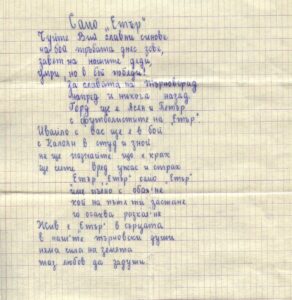 Само „Етър"
Чуйте Вий славни синове
на бой тръбата днес зове,
завет на нашите деди,
умри, но в бой победи!
За славата на Търновград
напред и никога назад
Горд ще е Асен и Петър
с футболистите на „Етър"
Ивайло с вас ще е в бой
с Калоян в студ и зной
не ще познайте що е крах
ще сеете вред ужас и страх
„Етър" „Етър" само „Етър"
име пълно с обаяние
кой на пътя ти застане
го очаква разкаяние
Жив е „Етър" в сърцата
в нашите търновски души
няма сила на земята
таз любов да задуши.